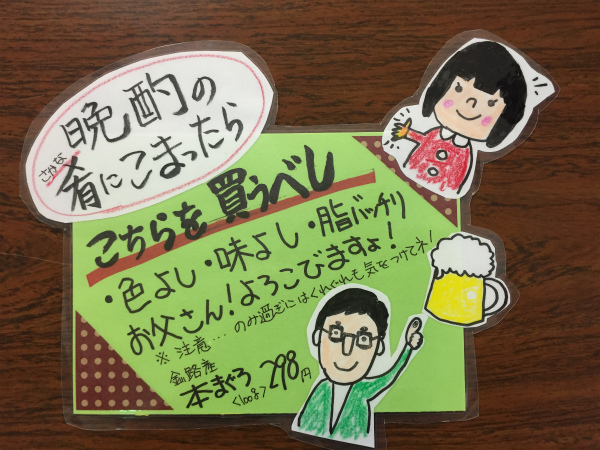 晩酌の
肴にこまったら
さかな
こちらを買うべし
・色よし・味よし・脂バッチリ
お父さん！よろこびますょ！
※注意…のみ過ぎにはくれぐれも気をつけてネ！
釧路産
本まぐろ 298円
<100g>